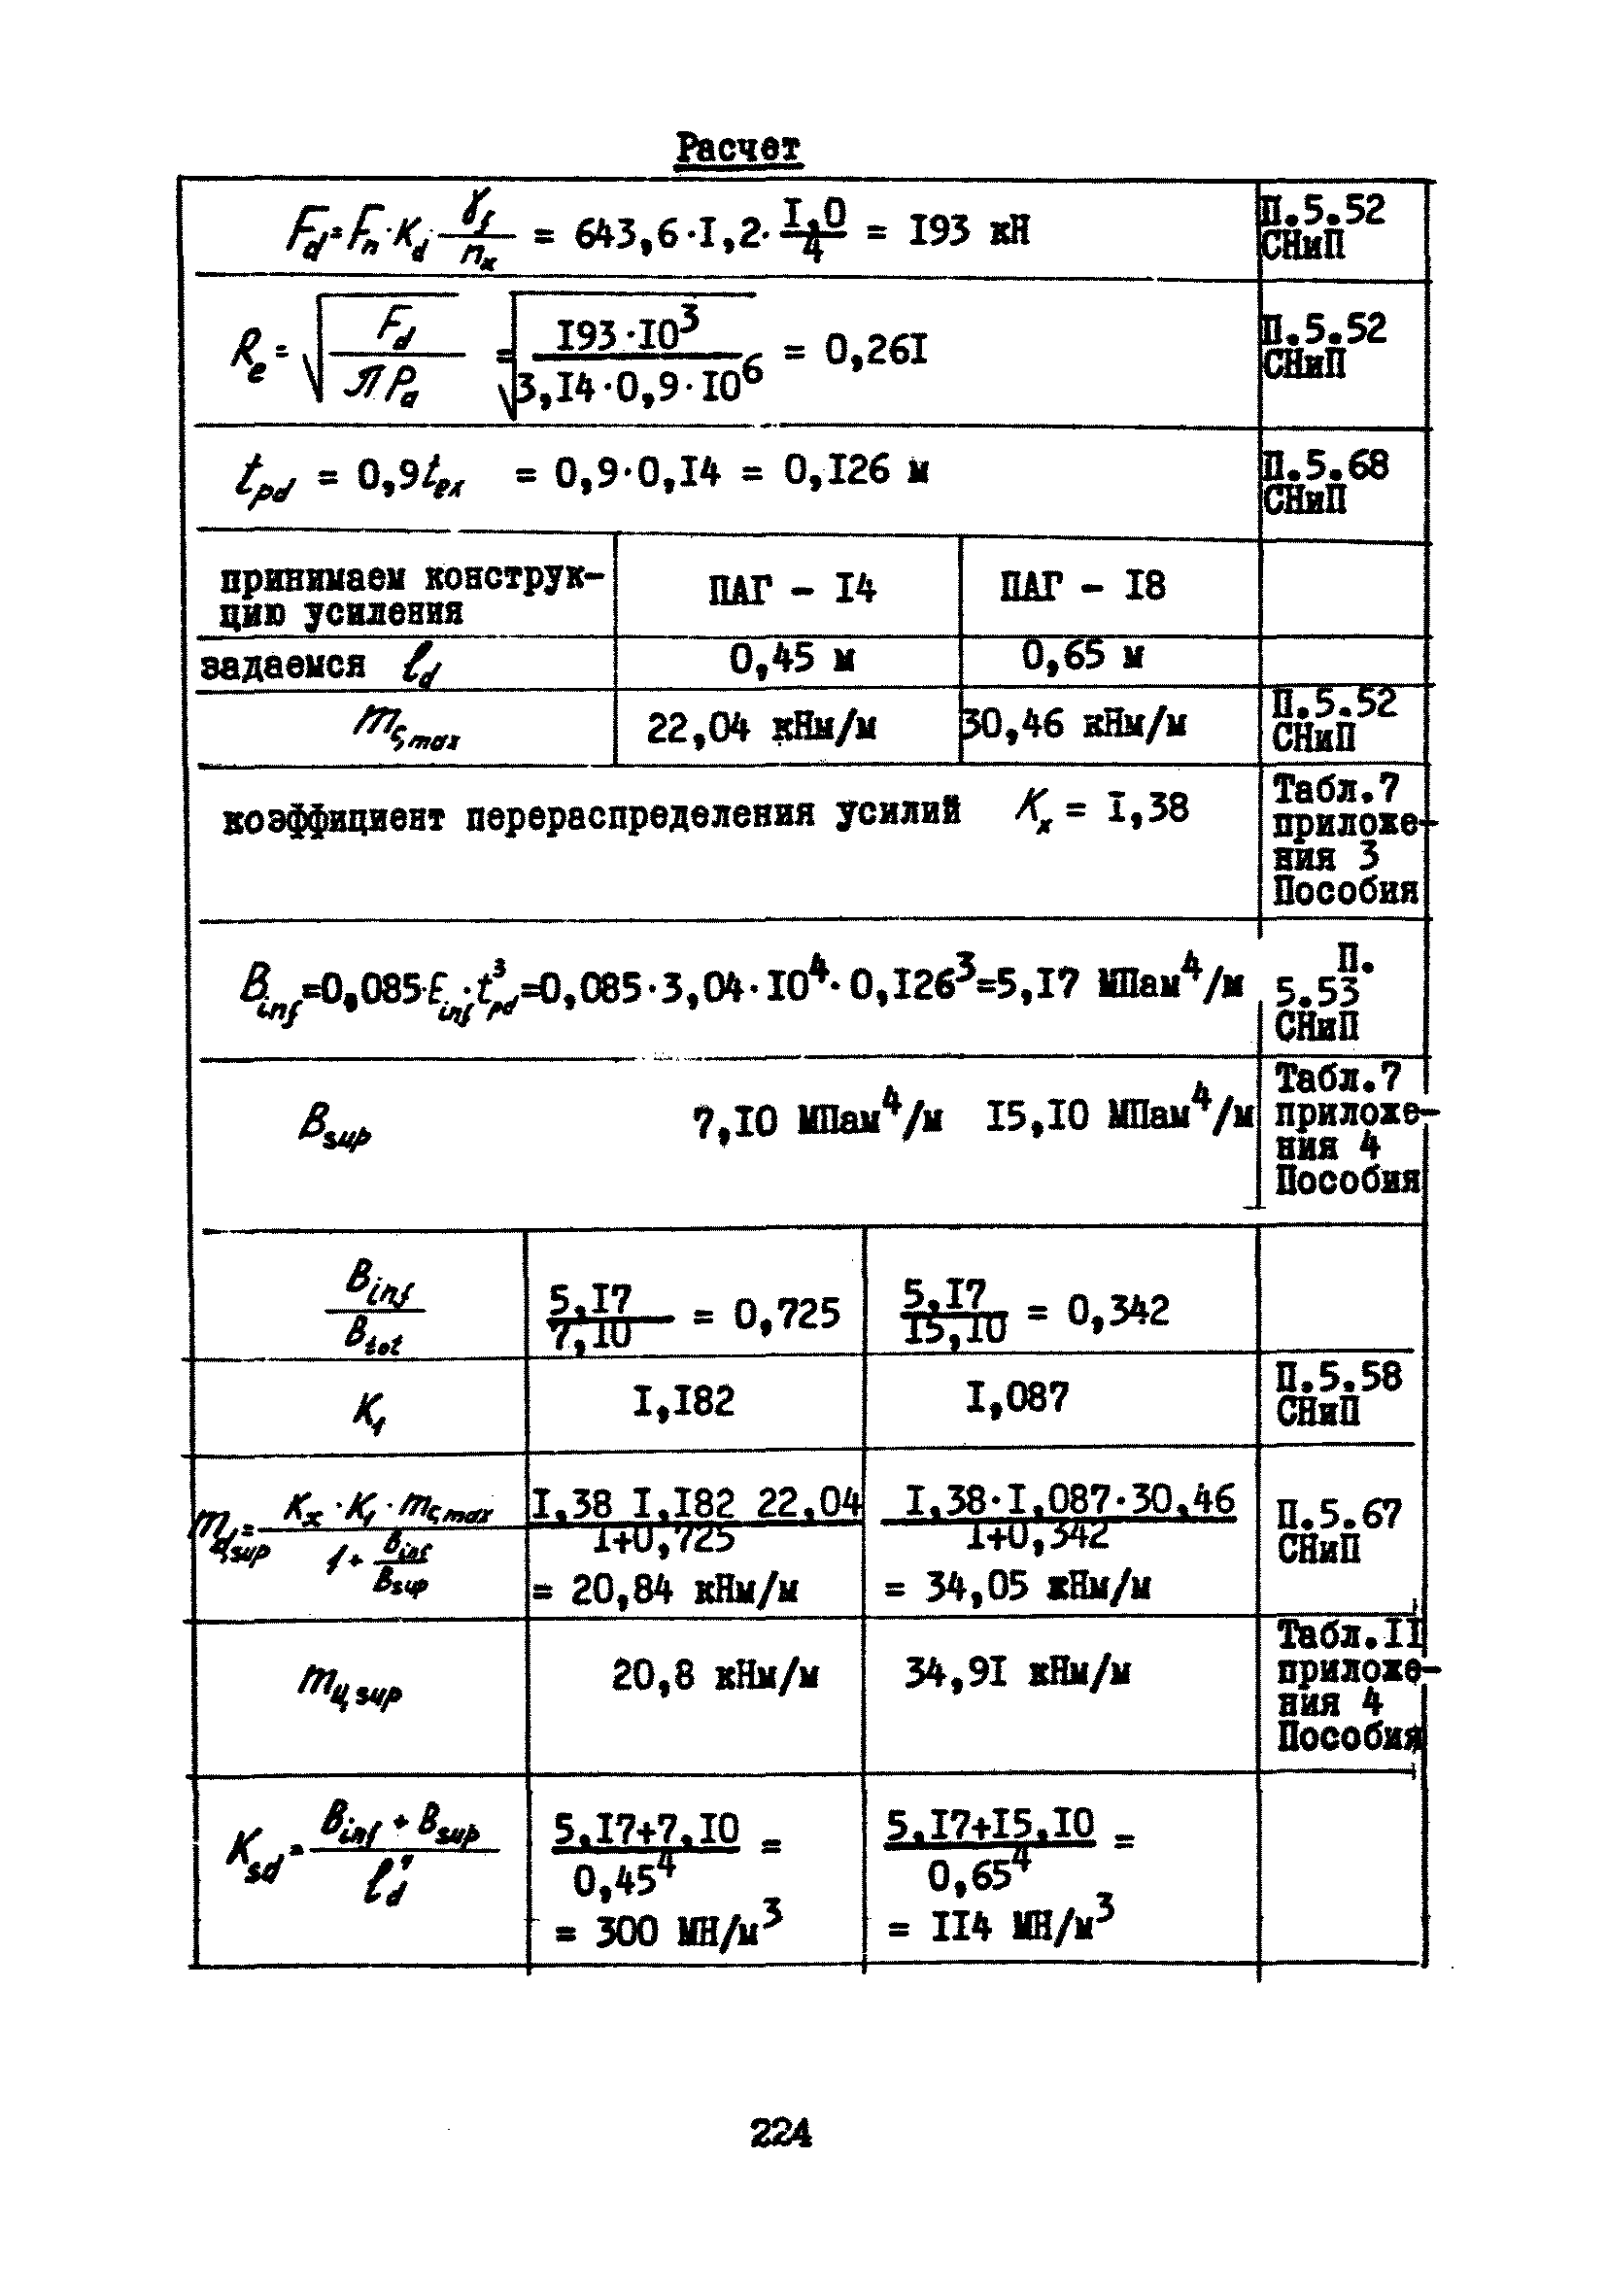 Расчет
F_d = F_n · K_d · γ_f / n_k = 643,6·1,2·1,0/4 = 193 кН П.5.52 СНиП
R_e = √(F_d / π P_a) = √(193·10³ / 3,14·0,9·10⁶) = 0,261 П.5.52 СНиП
t_pd = 0,9 t_ex = 0,9·0,14 = 0,126 м П.5.68 СНиП
принимаем конструк-
цию усиления ПАГ - 14 ПАГ - 18
задаемся l_d 0,45 м 0,65 м
m_c,max 22,04 кНм/м 30,46 кНм/м П.5.52 СНиП
коэффициент перераспределения усилий K_x = 1,38 Табл.7
приложе-
ния 3
Пособия
B_inf=0,085·E_inf·t³_pd=0,085·3,04·10⁴·0,126³=5,17 МПам⁴/м П.
5.53
СНиП
B_sup 7,10 МПам⁴/м 15,10 МПам⁴/м Табл.7
приложе-
ния 4
Пособия
B_inf / B_tot 5,17/7,10 = 0,725 5,17/15,10 = 0,342
K_1 1,182 1,087 П.5.58 СНиП
m_d,sup = K_x · K_1 · m_c,max / (1 + B_inf/B_sup) 1,38 1,182 22,04 / 1+0,725 1,38·1,087·30,46 / 1+0,342 П.5.67 СНиП
= 20,84 кНм/м = 34,05 кНм/м
m_u,sup 20,8 кНм/м 34,91 кНм/м Табл.11
приложе-
ния 4
Пособия
K_sd = B_inf + B_sup / l_d⁴ 5,17+7,10 / 0,45⁴ = 5,17+15,10 / 0,65⁴ =
= 300 МН/м³ = 114 МН/м³
224